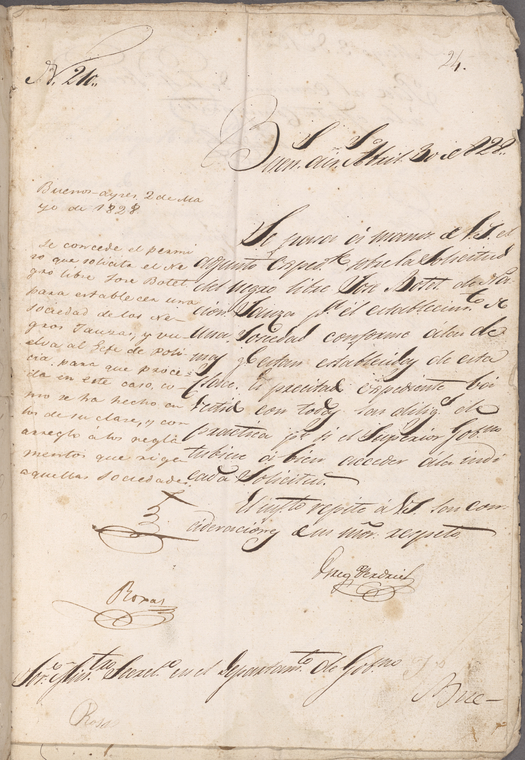 N. 210.
24.
Buen.s air.s Abril 30 de 1828.
Buenos-ayres, 2 de Ma
yo de 1828
Se concede el permi
so que solicita el ne
gro libre José Botet
para establecer una
sociedad de los ne-
gros Sauza, y vu
elva al Gefe de Poli
cia, para que proce
da en este caso, co
mo se ha hecho en
los de su clase, y con
arreglo a los regla
mentos que rigen
aquellas sociedades
Rojas
Se pasa á manos de V.S. el
adjunto Exped.te sobre la solicitud
del negro libre José Botet de Na
cion Sauza p.a el establecim.to de
una Sociedad conforme á las de
mas q.e estan establecidas de esta
clase. El precitado expediente bá
vestido con todas las dilig.s de
practica p.a si el Superior Gob.no
tubiese á bien acceder á la indi
cada solicitud.
El infto repite á V.S. son con-
sideracion y su mor. respeto
Greg.o Perdriel
Sor. Min.tro Secret.o en el Departam.to de Gob.no